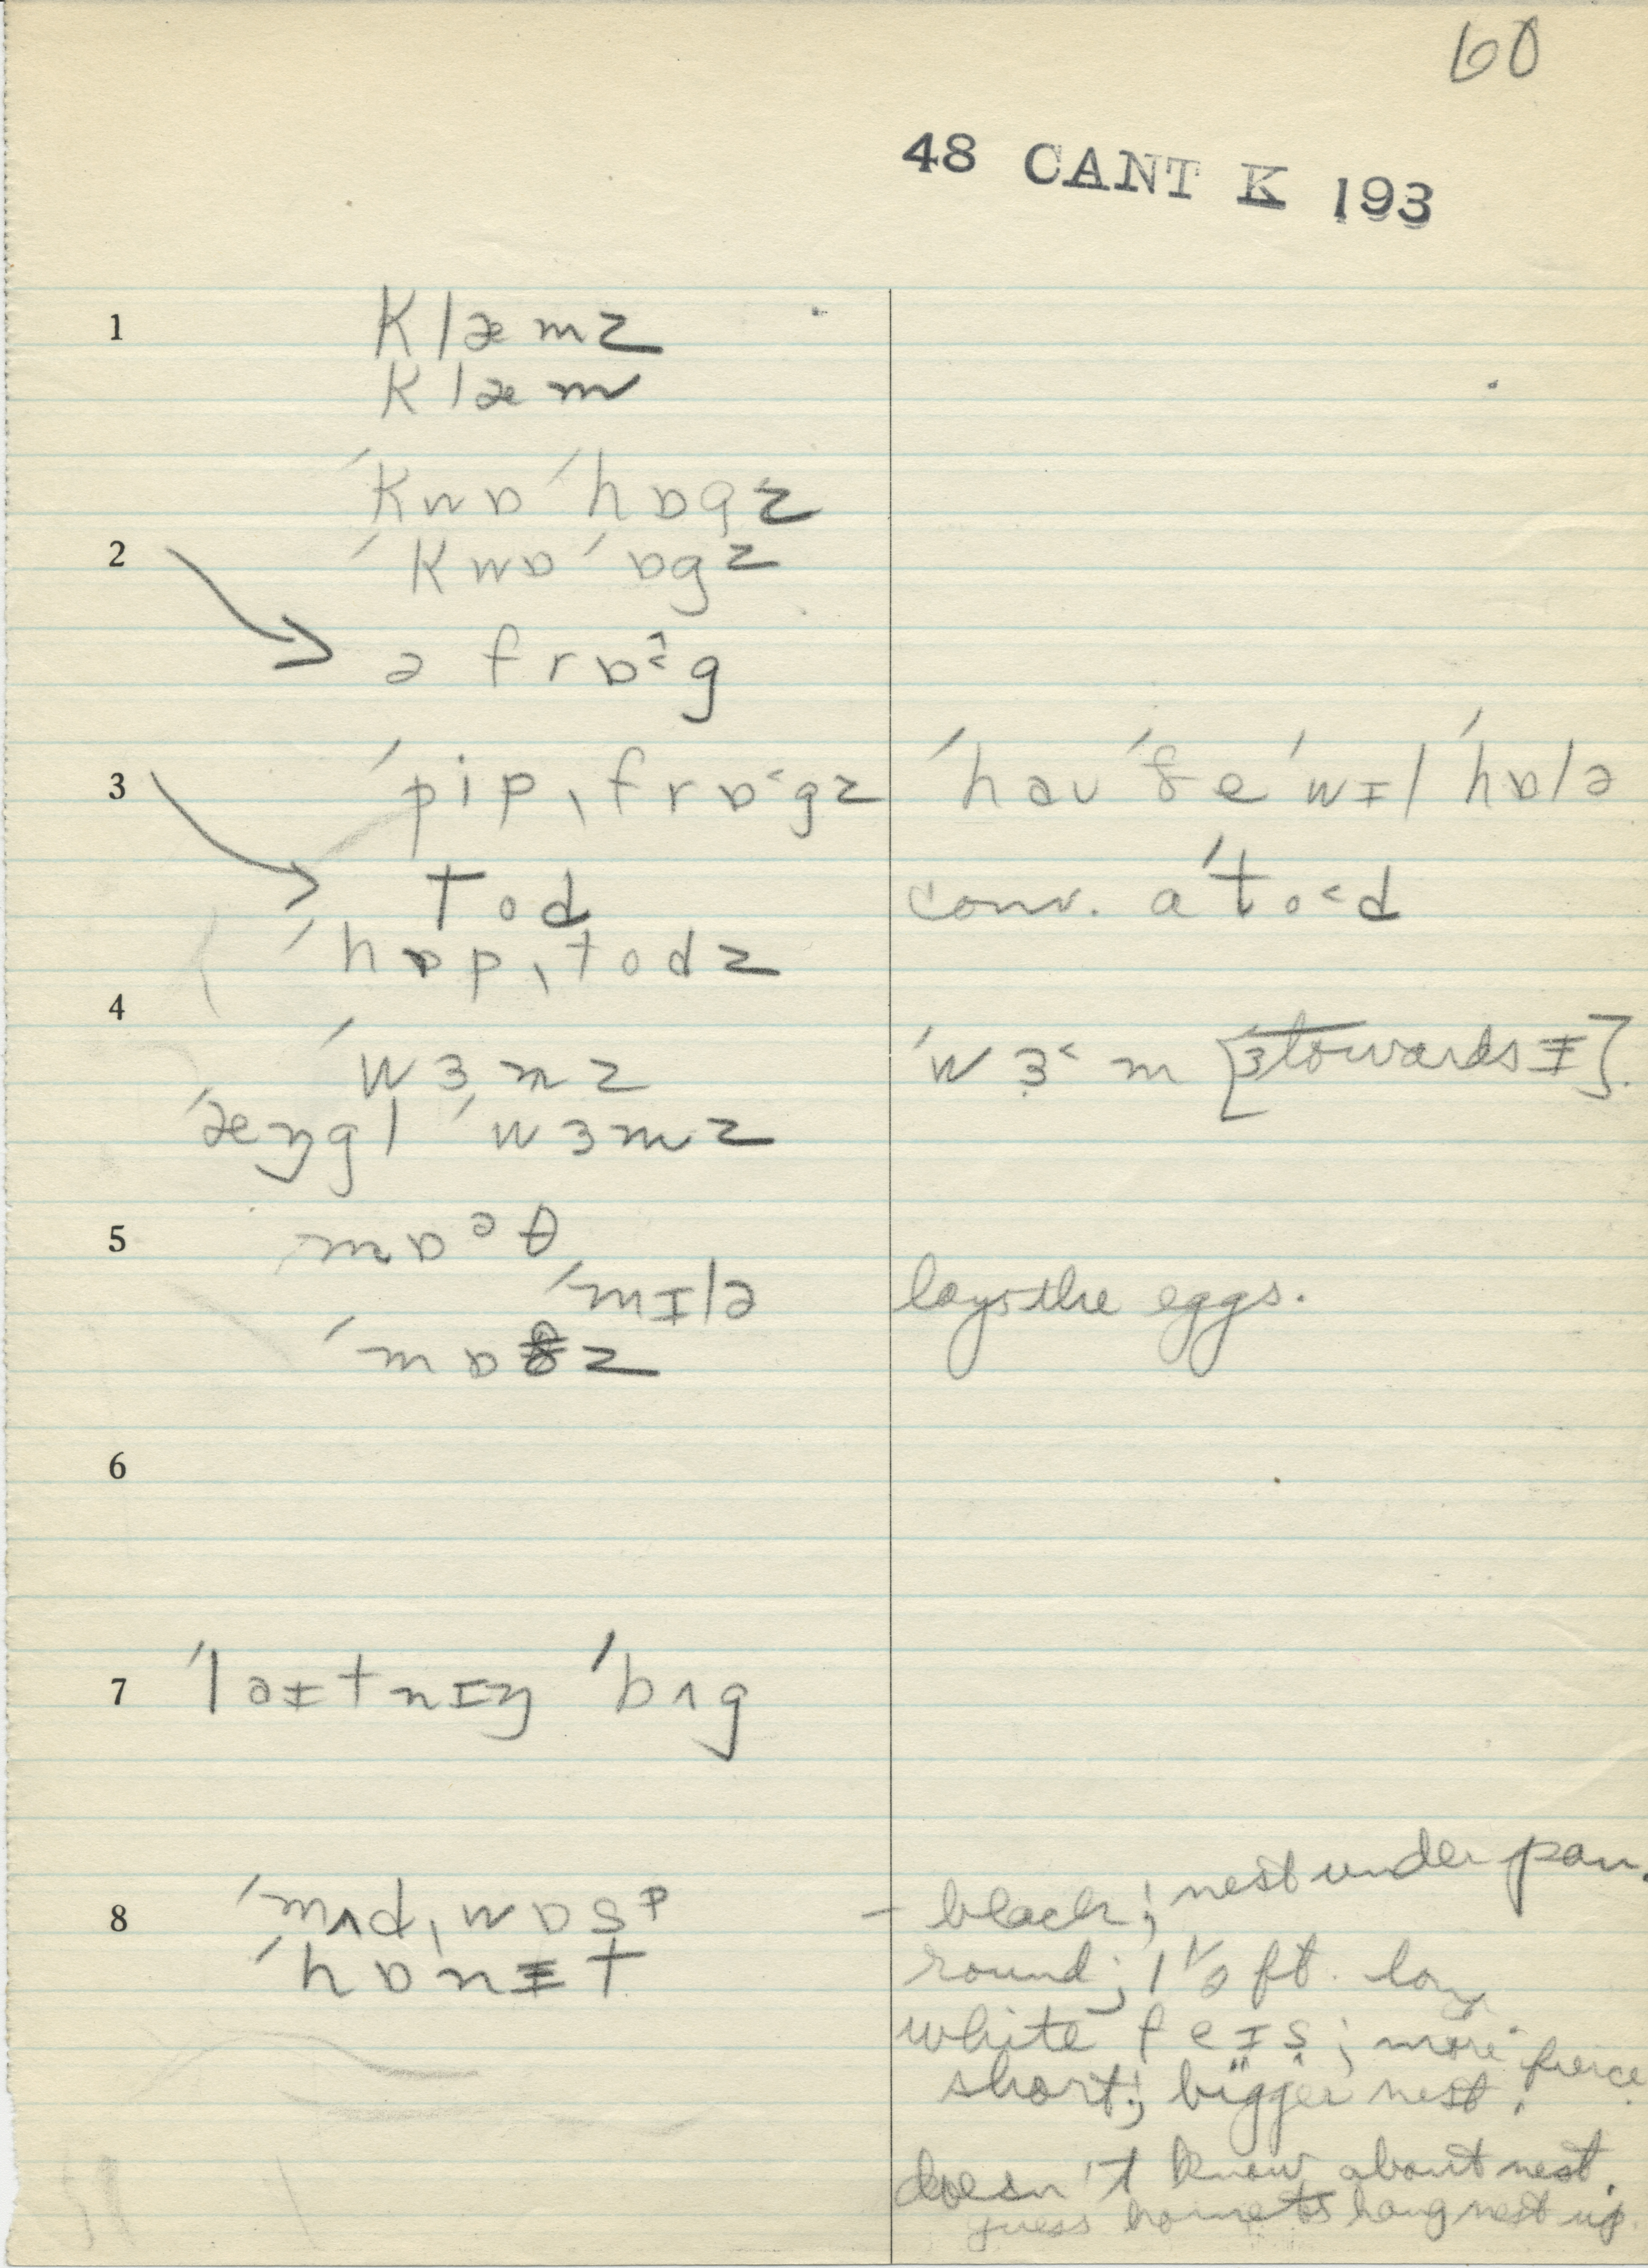 60
48 CANT K 193
1 klæmz
klæm
ˈkwɒ ˈhɒgz
2 ˈkwɒ ˈɒgz
ə frɒ˂g
3 ˈpipˌfrɒ˂gz ˈhaʊ ˈðe ˈwɪl ˈhɒlə
tod conv. a ˈto˂d
ˈhɒpˌtodz
4
ˈwɜmz ˈwɜ˂m [ɜ towards ɪ].
ˈæŋgl ˈwɜmz
5 mɒᵊθ
ˈmɪlə lays the eggs.
ˈmɒðz
6
7 ˈlaɪtnɪŋ ˈbʌg
8 ˈmʌdˌwɒsᵖ – black; nest under pan.
ˈhɒnɪt round; 1 1/2 ft. long
white feɪs; more fierce
short; bigger nest.
doesn't know about nest.
guess hornets hang nest up